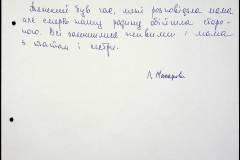 Тяжкий був час, який розповідала мама
але смерть нашу родину обійшла сторо-
ною. Всі залишилися живими і мама
з татом і сестри.
Л. Макарова